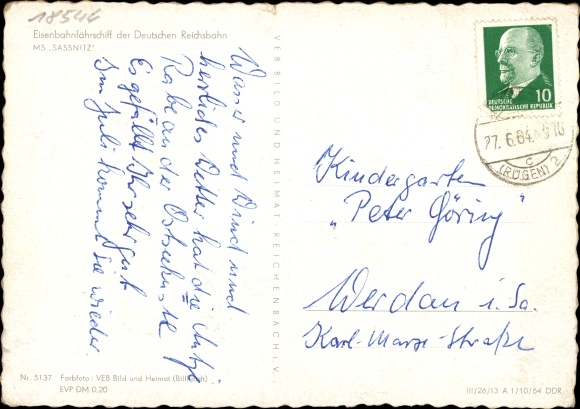 18544
Eisenbahnfährschiff der Deutschen Reichsbahn
MS „SASSNITZ"
Wasser und Wind und
herrliches Wetter hat die
an der Ostseeküste
Es gefällt Ihr sehr gut
Im Juli kommt sie wieder.
VEB BILD UND HEIMAT REICHENBACH I. V.
10
DEUTSCHE
DEMOKRATISCHE REPUBLIK
27. 6. 64
c
(RÜGEN) 2
Kindergarten
„Peter Göring"
Werdau i. Sa.
Karl-Marx-Straße
Nr. 5137 Farbfoto: VEB Bild und Heimat
EVP DM 0,20
III/26/13 A 1/10/64 DDR